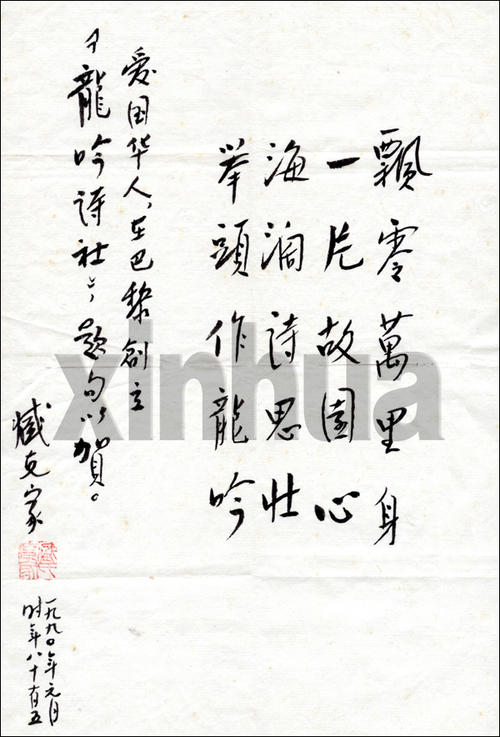 飄零萬里身
一片故園心
海濶詩思壯
举頭作龍吟
爱国华人,在巴黎創立
《龍吟詩社》,题句以賀。
臧克家
一九九〇年元月
时年八十有五
xinhua